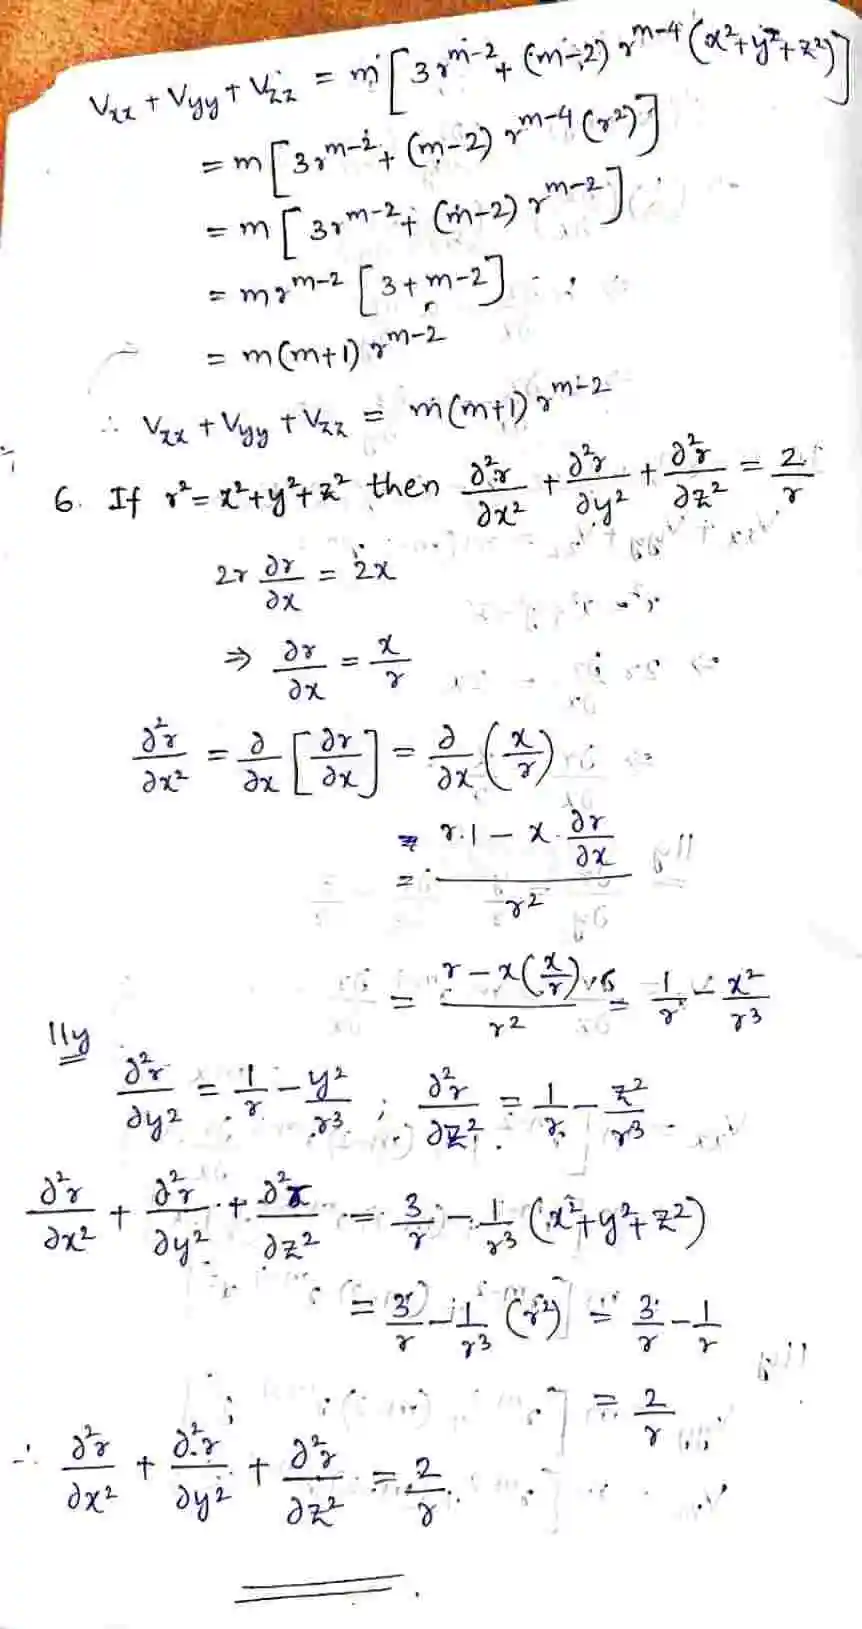 Vxx + Vyy + Vzz = m[3r^(m-2) + (m-2) r^(m-4) (x²+y²+z²)]
= m[3r^(m-2) + (m-2) r^(m-4) (r²)]
= m[3r^(m-2) + (m-2) r^(m-2)]
= m r^(m-2) [3+m-2]
= m(m+1) r^(m-2)
∴ Vxx + Vyy + Vzz = m(m+1) r^(m-2)
6. If r² = x²+y²+z² then ∂²r/∂x² + ∂²r/∂y² + ∂²r/∂z² = 2/r
2r ∂r/∂x = 2x
⇒ ∂r/∂x = x/r
∂²r/∂x² = ∂/∂x [∂r/∂x] = ∂/∂x (x/r)
= (r.1 − x. ∂r/∂x)/r²
= (r − x(x/r))/r² = 1/r − x²/r³
lly
∂²r/∂y² = 1/r − y²/r³ ; ∂²r/∂z² = 1/r − z²/r³
∂²r/∂x² + ∂²r/∂y² + ∂²r/∂z² = 3/r − 1/r³ (x²+y²+z²)
= 3/r − 1/r³ (r²) = 3/r − 1/r
= 2/r
∴ ∂²r/∂x² + ∂²r/∂y² + ∂²r/∂z² = 2/r.